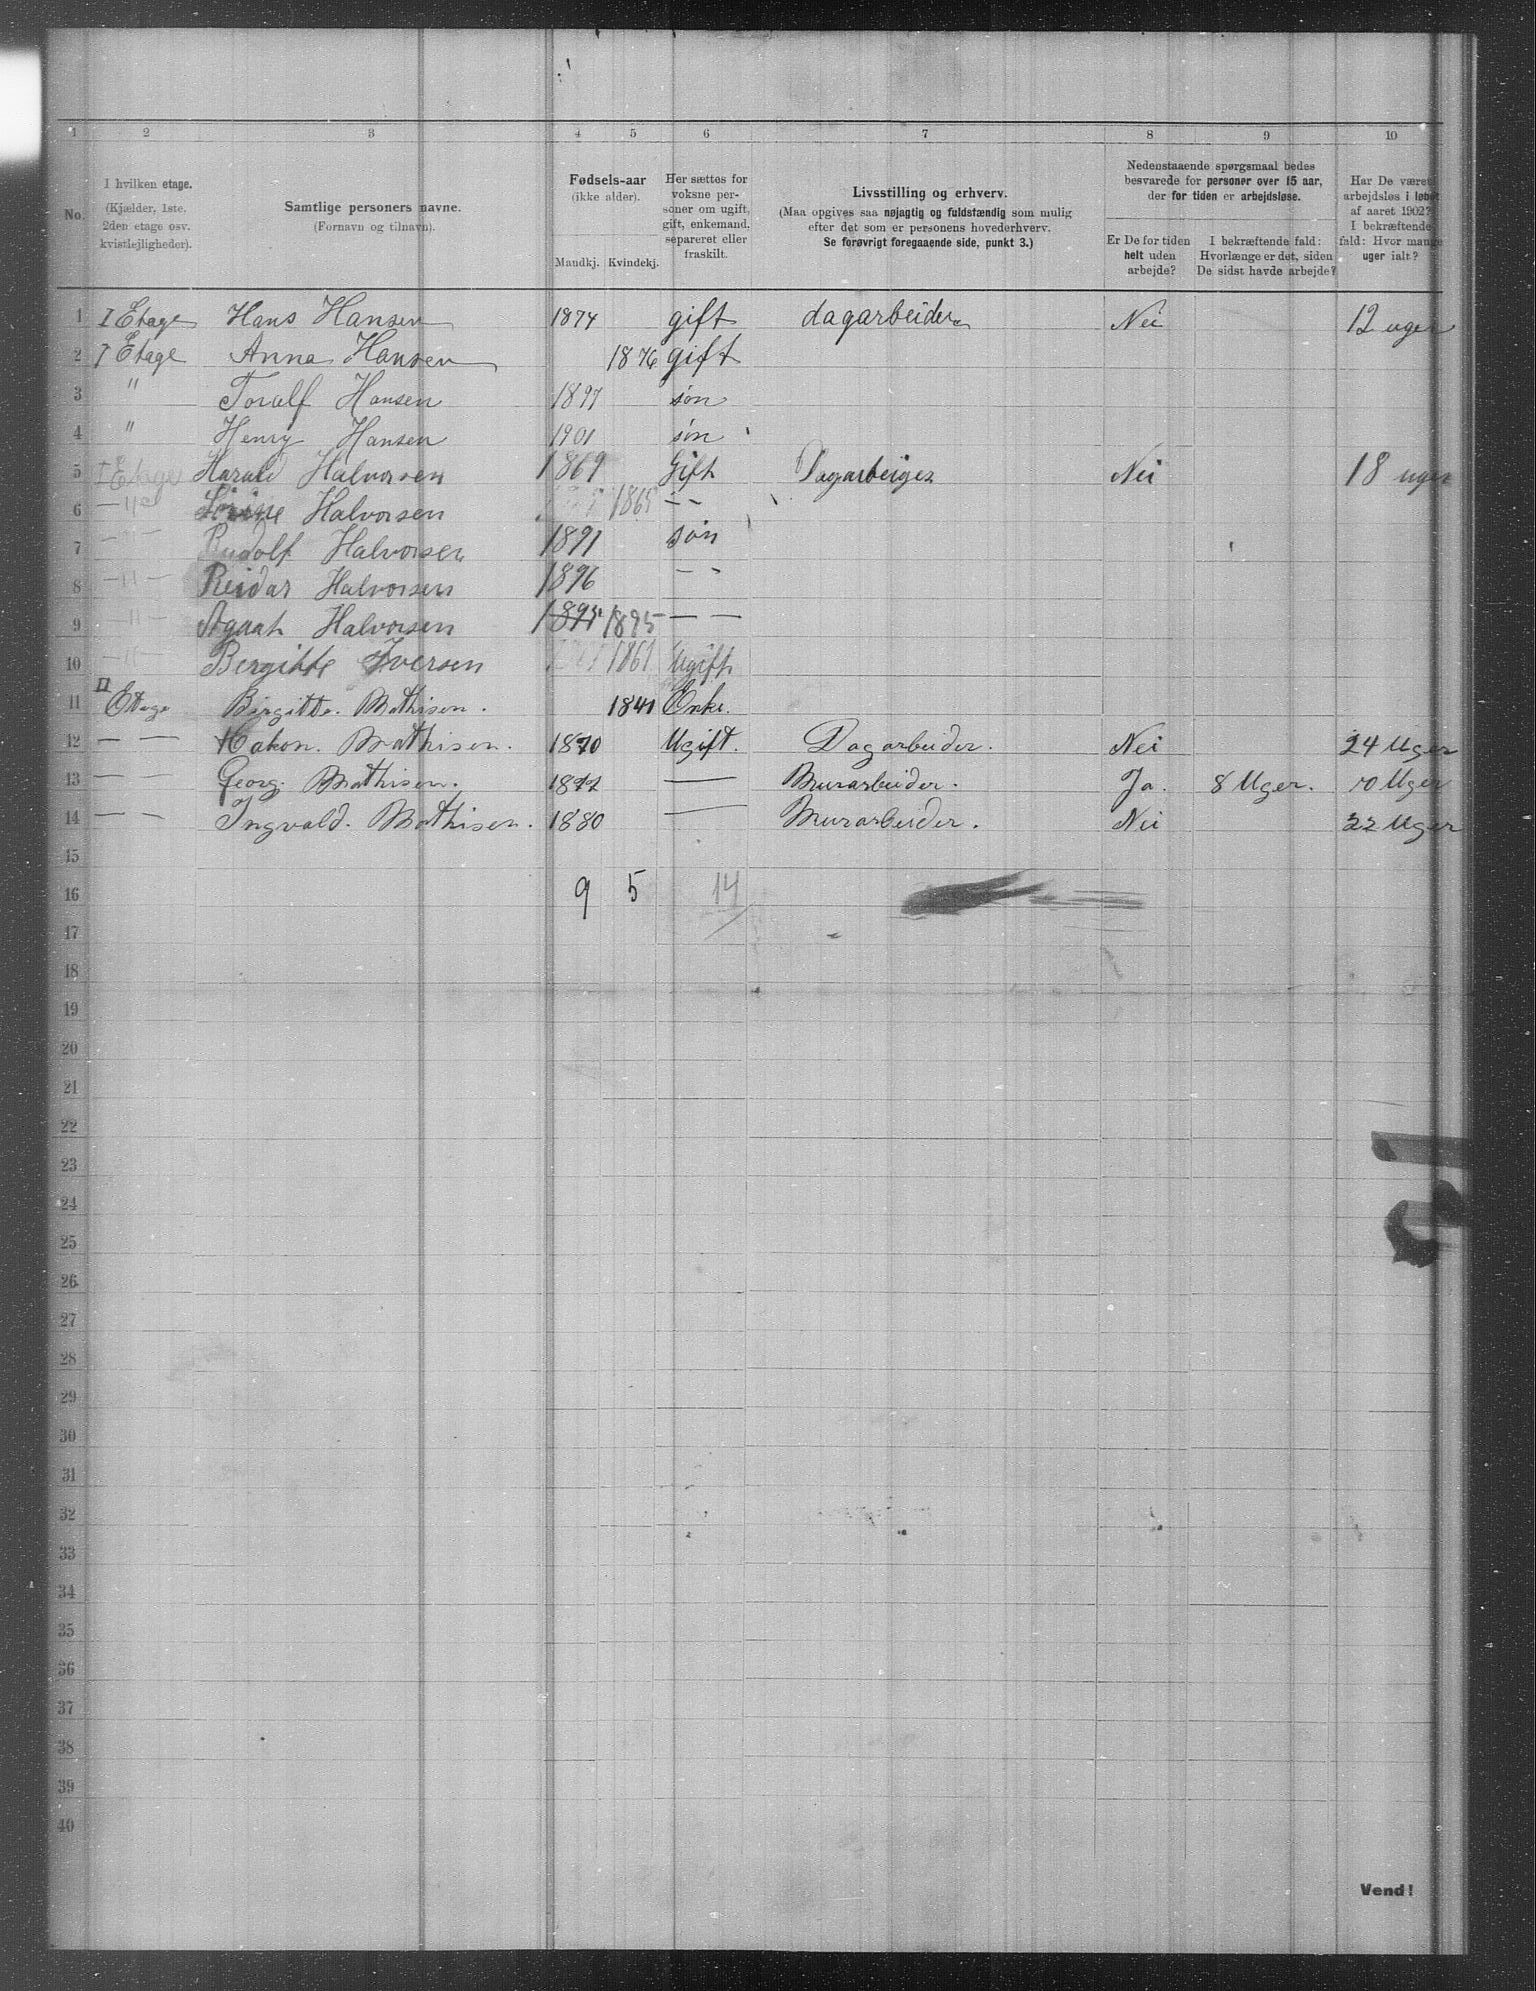 1 2 3 4 5 6 7 8 9 10
No.
I hvilken etage.
(Kjælder, 1ste.
2den etage osv.
kvistlejligheder).
Samtlige personers navne.
(Fornavn og tilnavn).
Fødsels-aar
(ikke alder).
Mandkj. Kvindekj.
Her sættes for
voksne per-
soner om ugift,
gift, enkemand,
separeret eller
fraskilt.
Livsstilling og erhverv.
(Maa opgives saa nøjagtig og fuldstændig som mulig
efter det som er personens hovederhverv.
Se forøvrigt foregaaende side, punkt 3.)
Nedenstaaende spørgsmaal bedes
besvarede for personer over 15 aar,
der for tiden er arbejdsløse.
Er De for tiden
helt uden
arbejde?
I bekræftende fald:
Hvorlænge er det, siden
De sidst havde arbejde?
Har De været
arbejdsløs i løbet
af aaret 1902?
I bekræftende
fald: Hvor mange
uger ialt?
1 I Etage Hans Hansen 1874 gift dagarbeider Nei 12 uger
2 I Etage Anna Hansen 1876 gift
3 " Toralf Hansen 1897 søn
4 " Henry Hansen 1901 søn
5 I Etage Harald Halvorsen 1869 Gift Dagarbeiger Nei 18 uger
6 — 11 — Sörine Halvorsen 1865 — —
7 — 11 — Rudolf Halvorsen 1891 søn
8 — 11 — Reidar Halvorsen 1896 — -
9 — 11 — Agaat Halvorsen 1895 1895 — —
10 — 11 — Bergitte Iversen 1861 Ugift
11 II Etage Birgitte. Mathisen. 1841 Enke.
12 — — Hakon. Mathisen. 1870 Ugift. Dagarbeider. Nei 24 Uger
13 — — Georg. Mathisen. 1877 — Murarbeider. Ja. 8 Uger. 10 Uger
14 — — Ingvald. Mathisen. 1880 — Murarbeider. Nei 22 Uger
15
16 9 5 14
17
18
19
20
21
22
23
24
25
26
27
28
29
30
31
32
33
34
35
36
37
38
39
40
Vend!